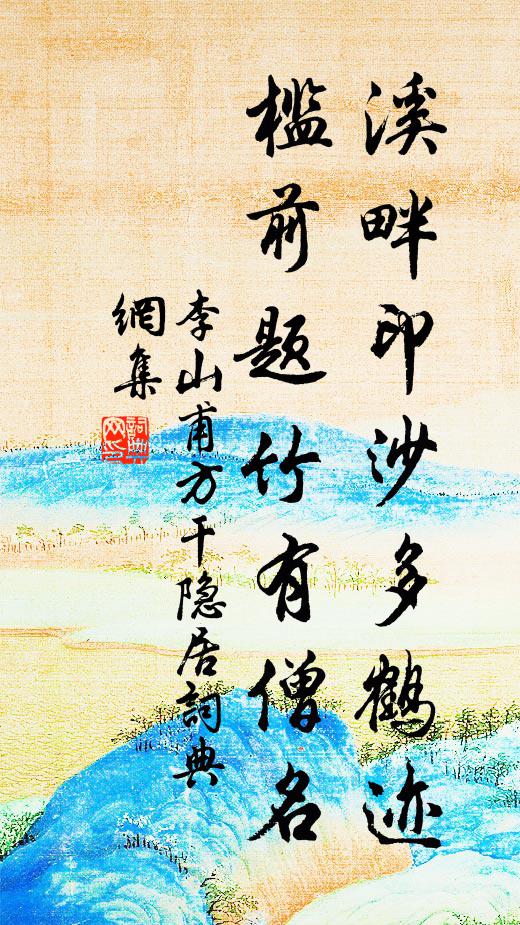 溪畔印沙多鶴迹
槛前题竹有僧名
李山甫方干隐居詞典
網集